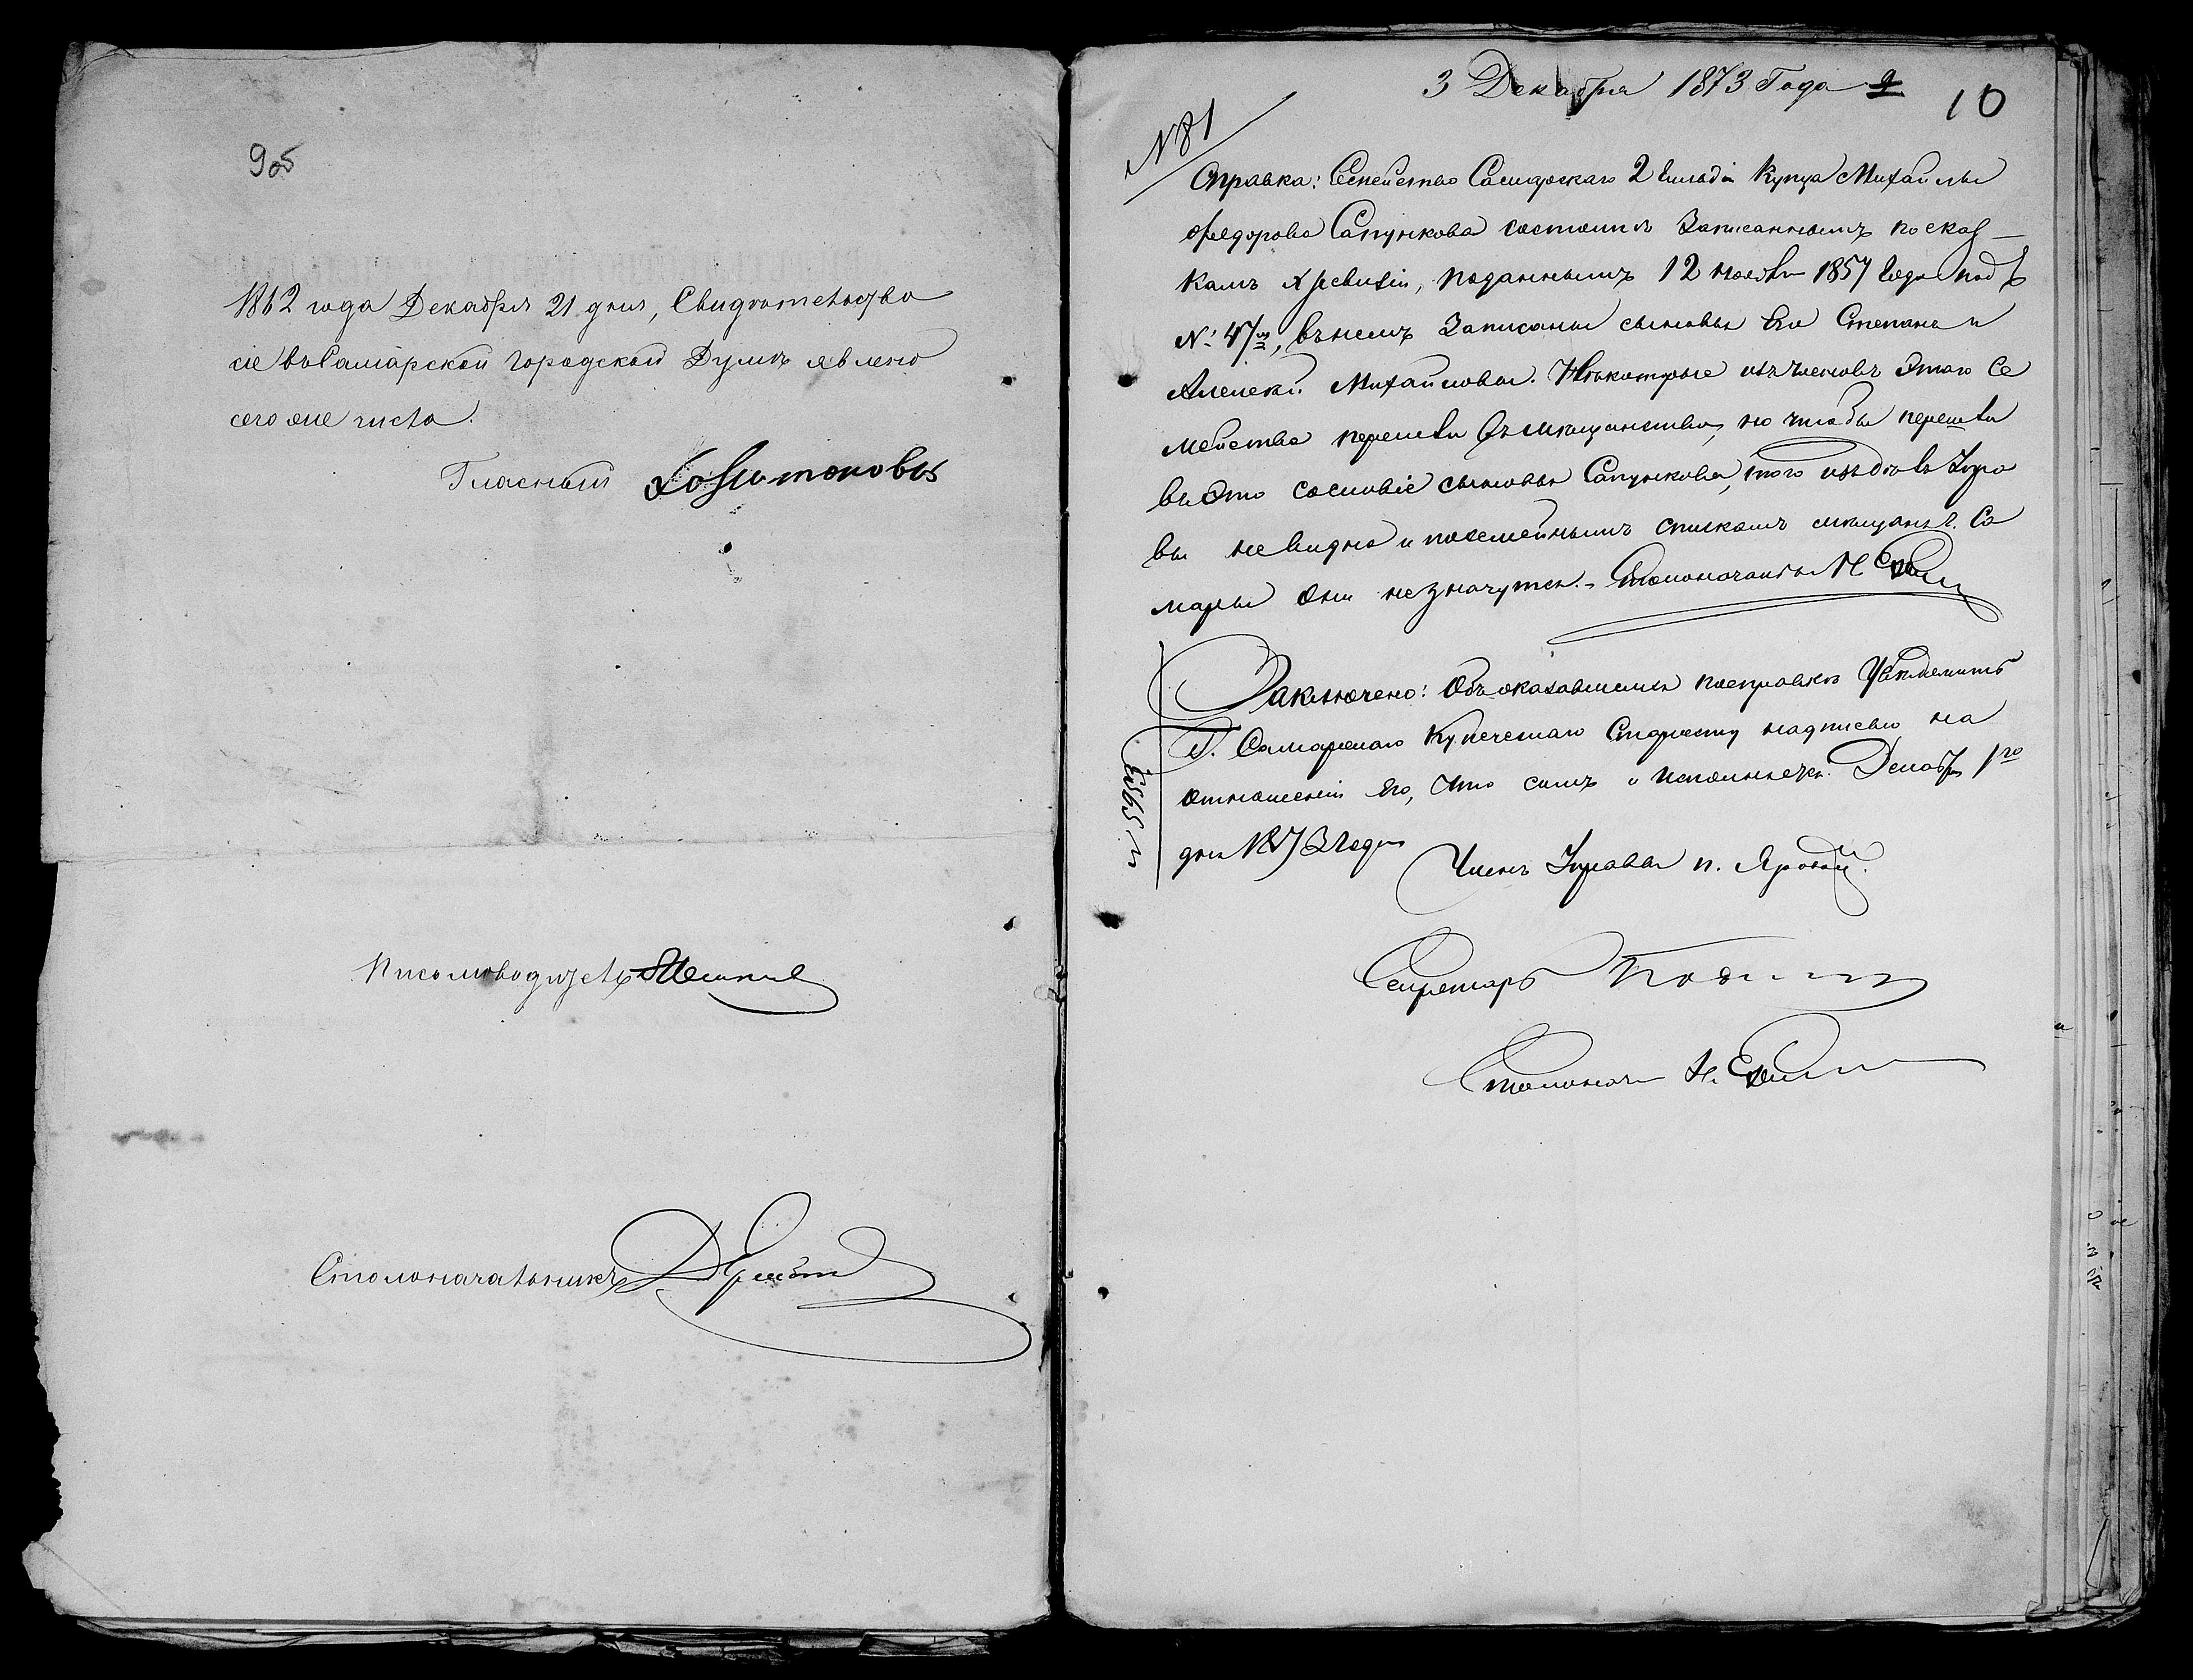 9об
1862 года Декабря 21 дня, Свидѣтельство
сіе въ Самарской Городской Думѣ явлено
сего же числа.
Гласный
Письмоводитель
Столоначальникъ
3 Декабря 1873 Года 9
10
№81
Справка: Семейство Самарскаго 2 Гильдіи Купца Михайлы
Федорова Сапункова состоитъ Записаннымъ по сказ-
камъ X ревизіи, поданнымъ 12 Ноября 1857 Года подъ
№: 47м, въ немъ Записаны сыновья Его Степанъ и
Алексѣй Михайловы. Нѣкоторые изъ членовъ Этаго Се
мейства перешли въ мѣщанство, но чтобы перешли
въ Это сословіе сыновья Сапункова, того изъ дѣлъ Упра
вы не видно и по семейнымъ спискамъ мѣщанъ г. Са
мары Они не значутся. - Столоначальн Н
Заключено: Объ оказавшемся по справкѣ Увѣдомить
Г. Самарскаго Купеческаго Старосту надписью на
отношеніи Его, Что симъ и исполняется. Декабря 1го
дня 1873 Года
Членъ Управы п. Яровой.
Секретарь
Столонач Н.